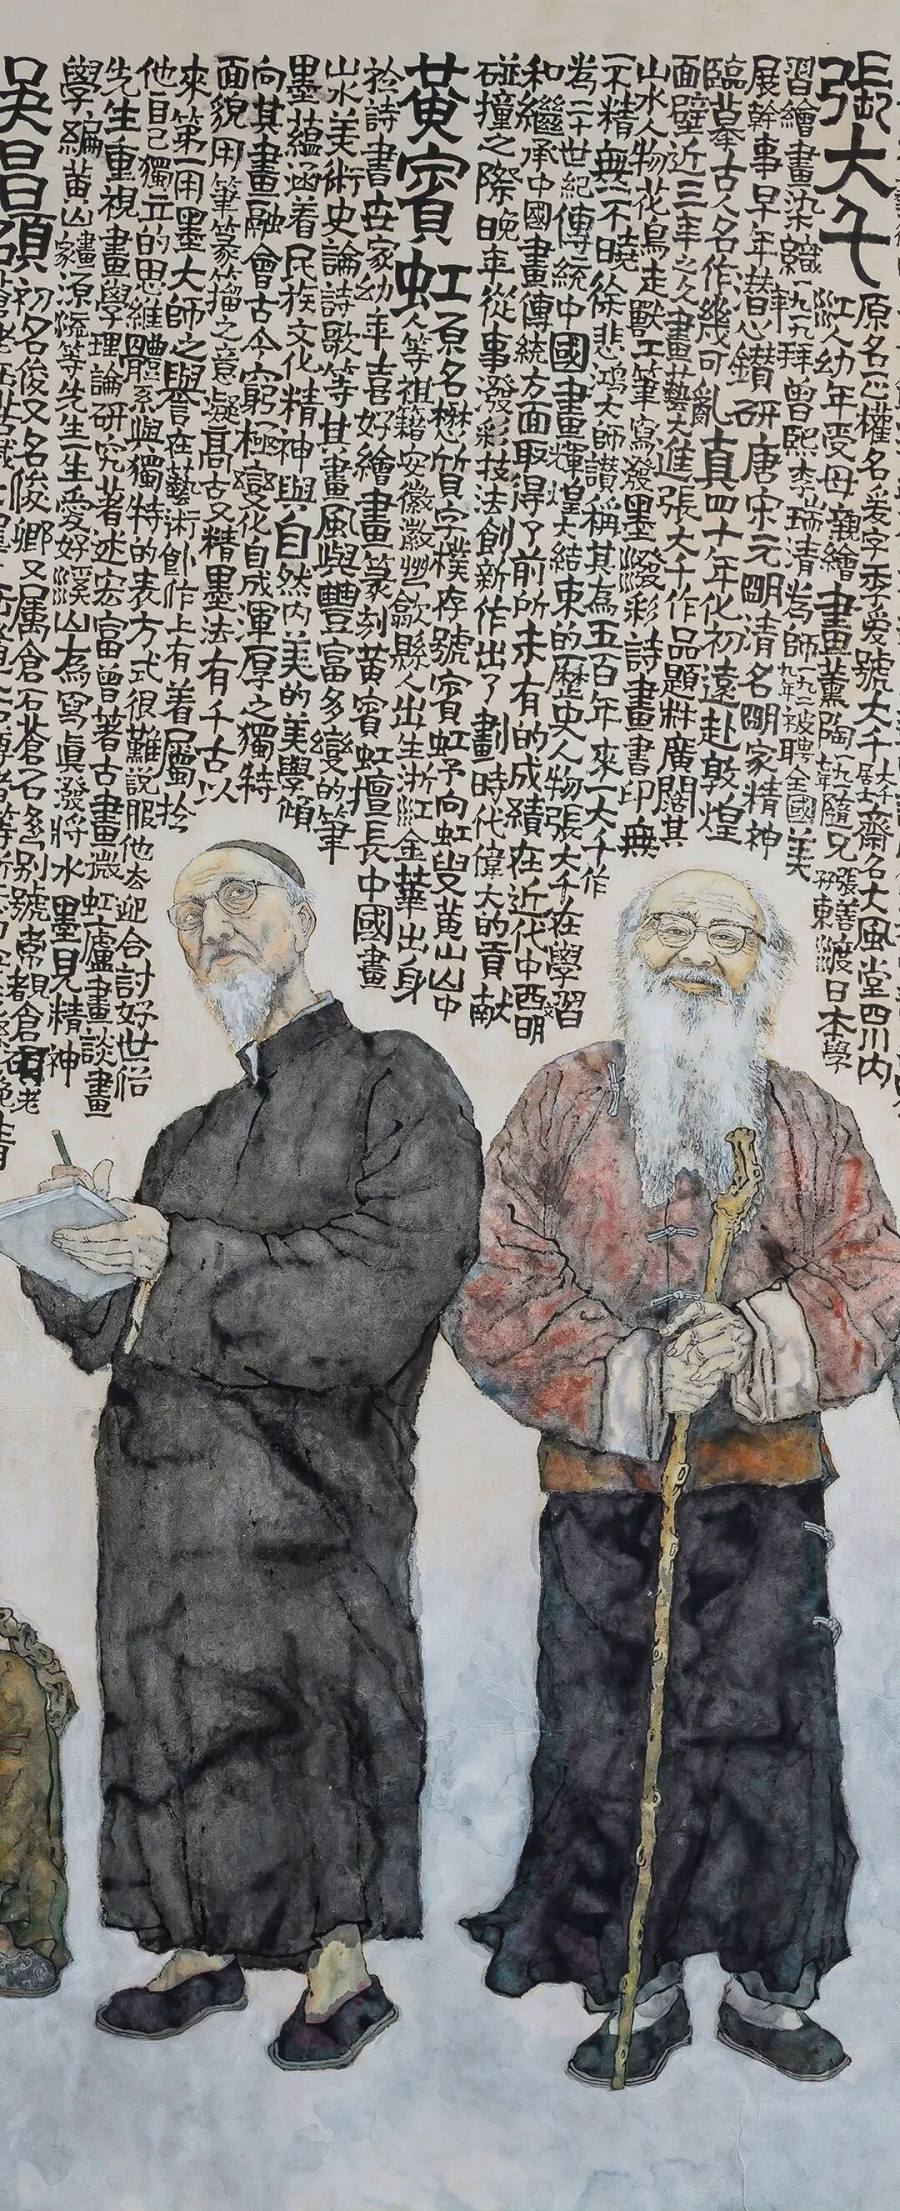 張大千原名正權名爰字季爰號大千大千居士齋名大風堂四川內
江人幼年受母親繪畫薰陶一九一七年隨兄張善孖東渡日本學
習繪畫染織一九一九拜曾熙李瑞清為師一九二九年被聘全國美
展幹事早年潜心鑽研唐宋元明清名家精神
臨摹古人名作幾可亂真四十年代初遠赴敦煌
面壁近三年之久畫藝大進張大千作品題材廣闊其
山水人物花鳥走獸工筆寫發墨潑彩詩畫書印無
一不精無一不曉徐悲鴻大師讚稱其為五百年來一大千作
為二十世紀傳統中國畫輝煌大結束的歷史人物張大千在學習
和繼承中國畫傳統方面取得了前所未有的成績在近代中西文明
碰撞之際晚年從事潑彩技法創新作出了劃時代偉大的貢献
黃賓虹原名懋質字樸存號賓虹予向虹叟黃山山中
人等祖籍安徽徽州歙縣人出生浙江金華出身
於詩書世家幼年喜好繪畫篆刻黃賓虹擅長中國畫
山水美術史論詩歌等其畫風與豐富多變的筆
墨蘊涵着民族文化精神與自然内美的美學傾
向其畫融會古今窮極變化自成渾厚之獨特
面貌用筆篆籀之意凝高古又精墨法有千古以
來第一用墨大師之與譽在藝術創作上有着屬於
他自己獨立的思維體系與獨特的表方式很難説服他去迎合討好世俗
先生重視畫學理論研究著述宏富曾著古畫微虹廬畫談畫
學編黃山畫家源流等先生一生愛好溪山為寫真潑將水墨見精神
吳昌碩初名俊又名俊卿又属倉石蒼石多别號常視者倉石老